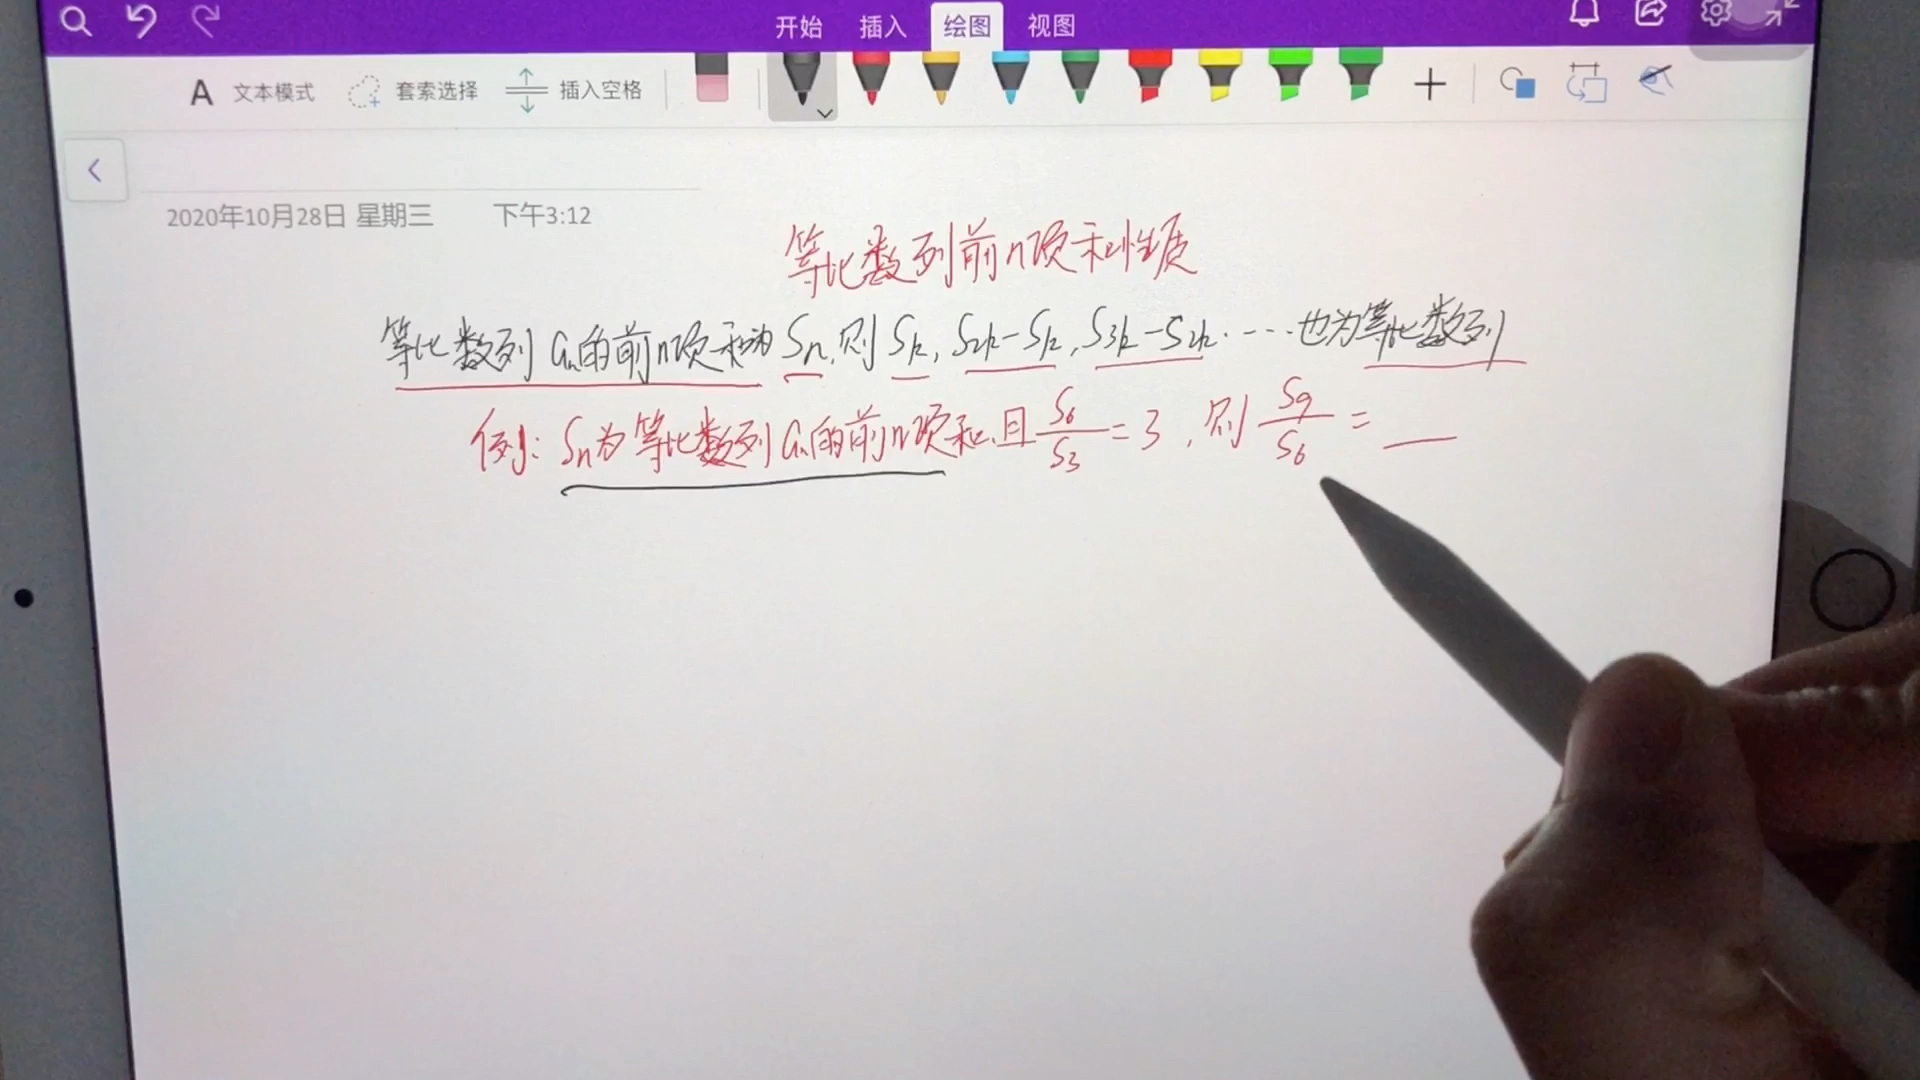 开始 插入 绘图 视图
A 文本模式 套索选择 插入空格
2020年10月28日 星期三 下午3:12
等比数列前n项和性质
等比数列 aₙ的前n项和为 Sₙ,则 Sₖ, S₂ₖ-Sₖ, S₃ₖ-S₂ₖ.···也为等比数列
例: Sₙ为等比数列 aₙ的前n项和,且 S₆/S₃=3,则 S₉/S₆=__